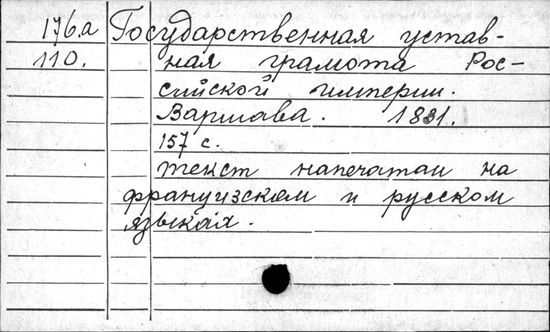 176.а Государственная устав-
110. ная грамота Рос-
сийской империи.
Варшава. 1831.
157 с.
Текст напечатан на
французском и русском
языках.